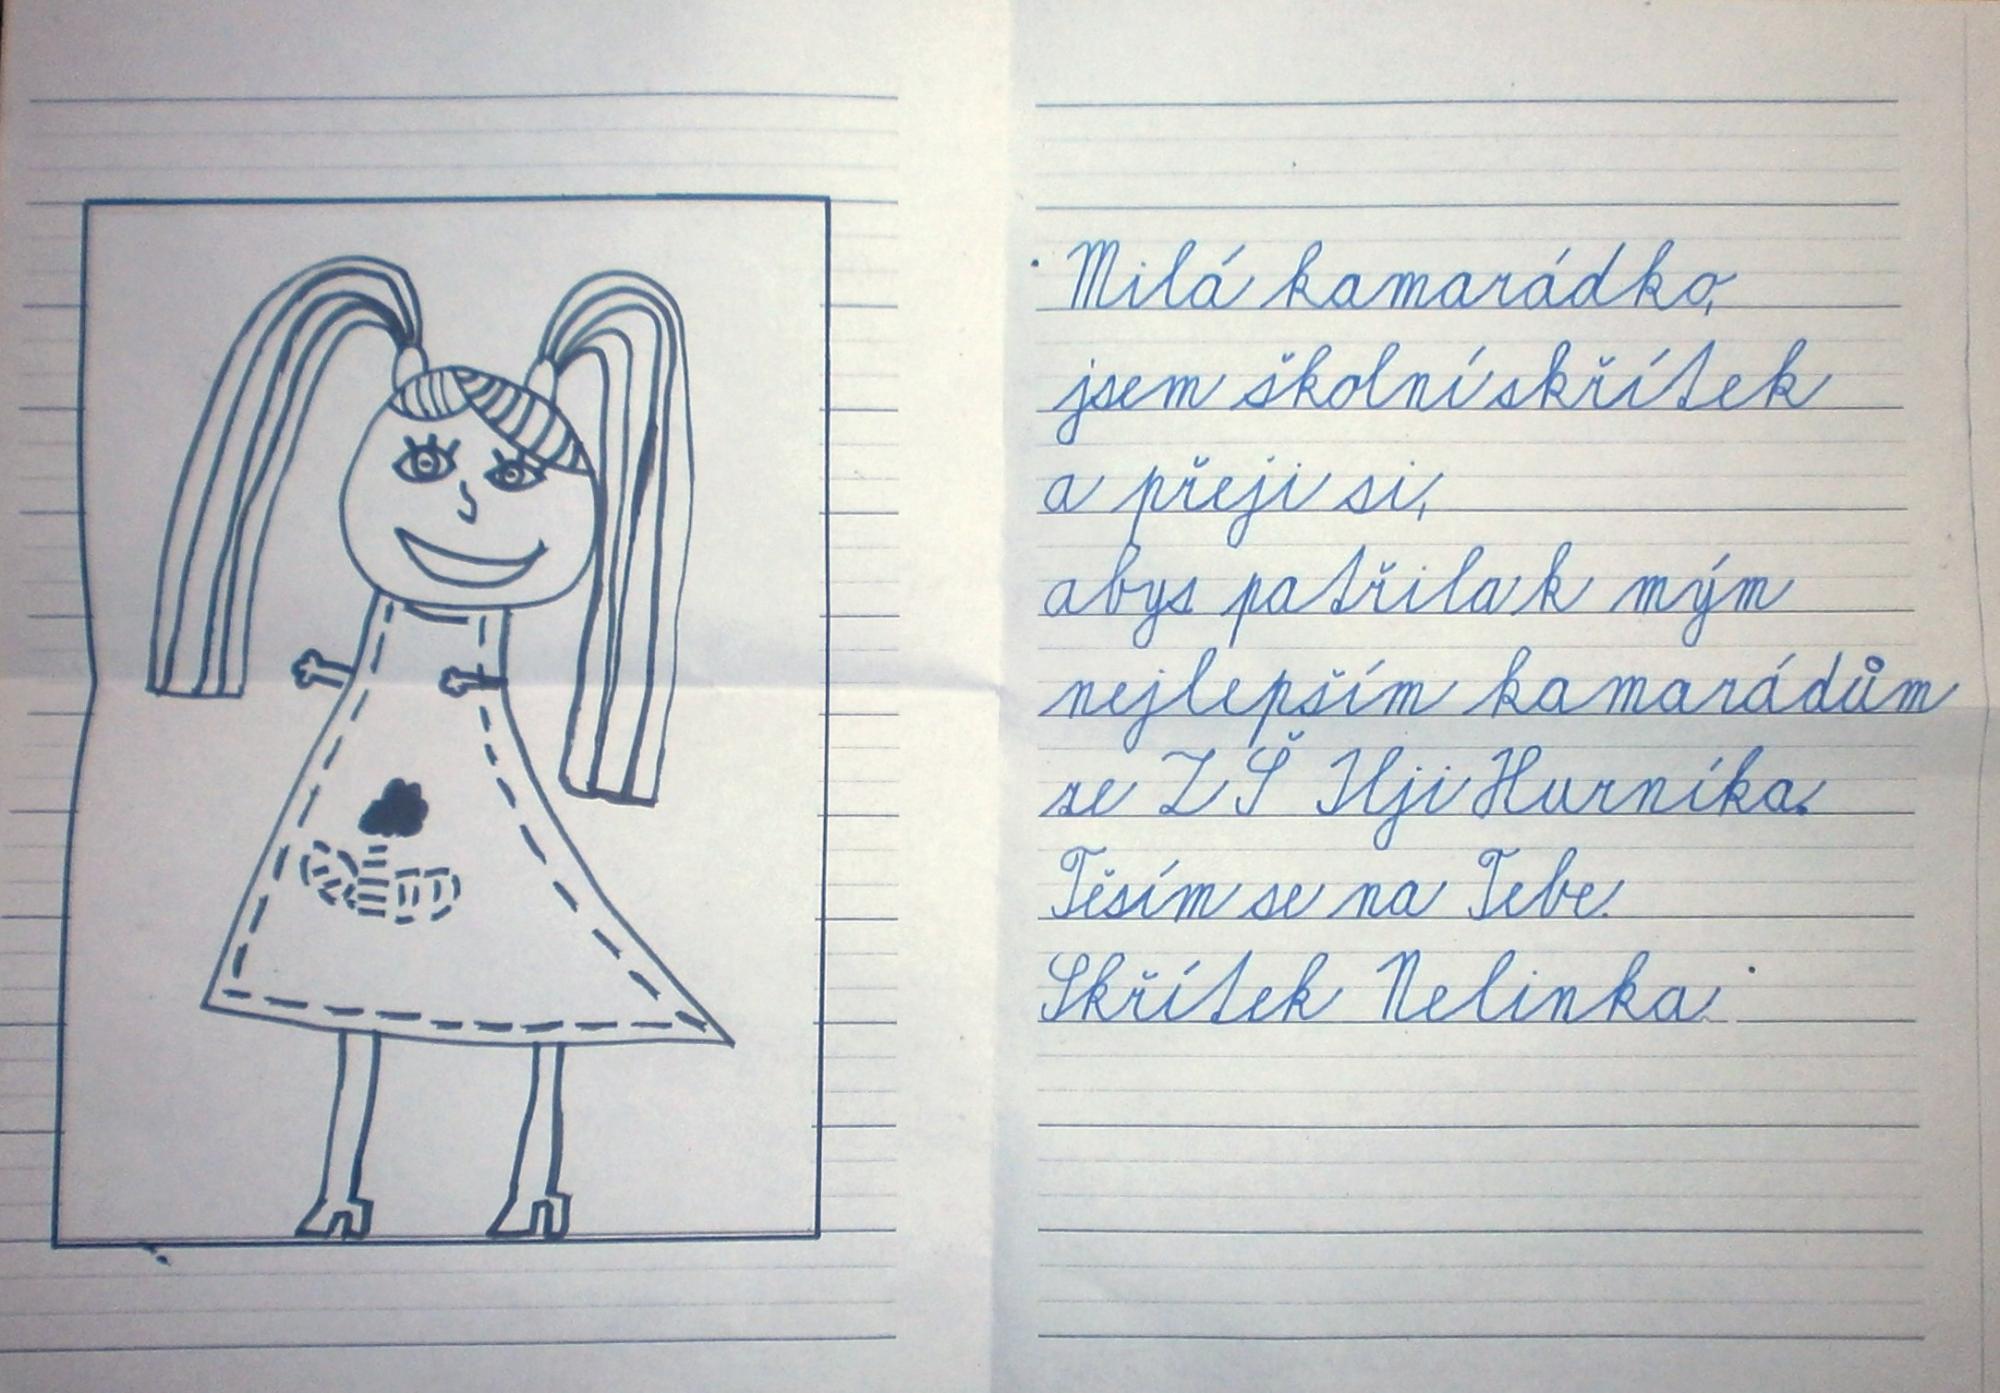 Milá kamarádko,
jsem školní skřítek
a přeji si,
abys patřila k mým
nejlepším kamarádům
ze ZŠ Ilji Hurníka.
Těsím se na Tebe.
Skřítek Nelinka